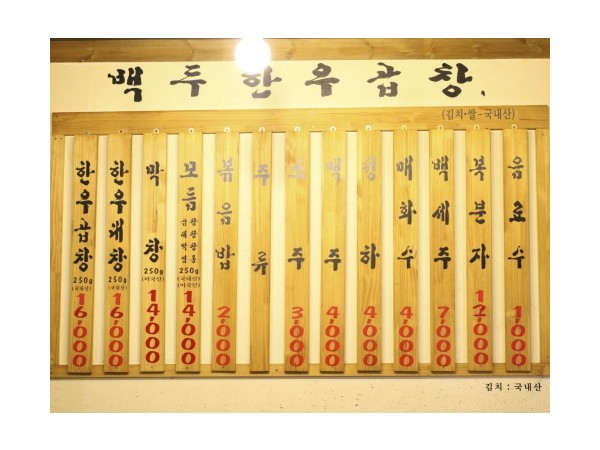 백두한우곱창
(김치·쌀-국내산)
한우곱창 250g (국내산) 16,000
한우대창 250g (국내산) 16,000
막창 250g (미국산) 14,000
모듬 250g (국내산) (미국산) 14,000
볶음밥 2,000
주류
소주 3,000
맥주 4,000
청하 4,000
매화수 4,000
백세주 7,000
복분자 12,000
음료수 1,000
김치 : 국내산